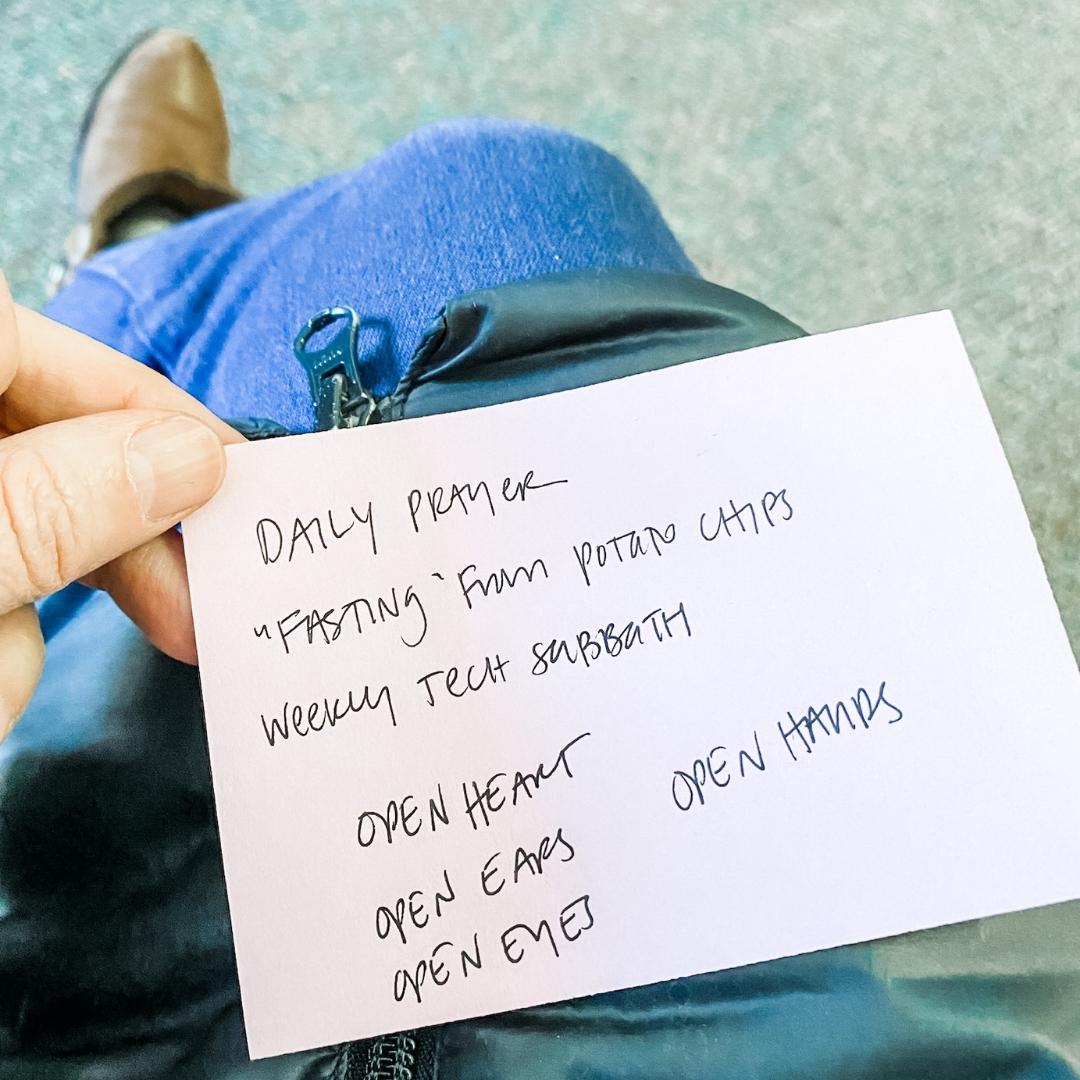 DAILY PRAYER
"FASTING" From POTATO CHIPS
WEEKLY TECH SABBATH
OPEN HEART
OPEN HANDS
OPEN EARS
OPEN EYES